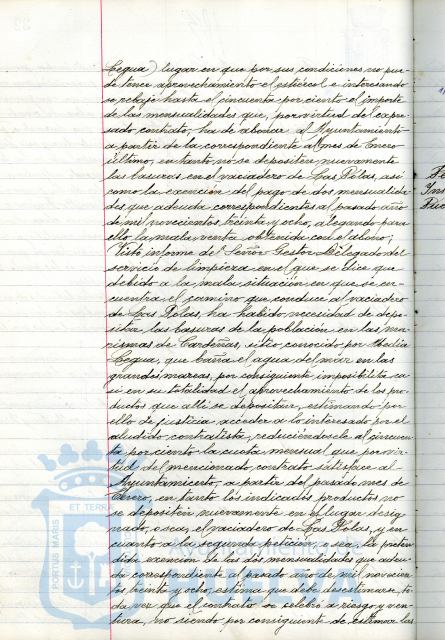 Legua) lugar en que por sus condiciones no pue-
de tener aprovechamiento el estiércol e interesando
se rebaje hasta el cincuenta por ciento el importe
de las mensualidades que, por virtud del expre-
sado contrato, ha de abonar al Ayuntamiento
a partir de la correspondiente al mes de Enero
último, en tanto no se depositen nuevamente
las basuras en el vaciadero de Las Polas, así
como la exención del pago de dos mensualida-
des que adeuda correspondientes al pasado año
de mil novecientos treinta y ocho, alegando para
ello la mala venta obtenida con el abono;
Visto informe del Señor Gestor Delegado del
servicio de limpieza en el que se dice que
debido a la mala situación en que se en-
cuentra el camino que conduce al vaciadero
de Las Polas, ha habido necesidad de depo-
sitar las basuras de la población en las ma-
rismas de Cardeñas, sitio conocido por Media
Legua, que baña el agua del mar en las
grandes mareas, por consiguiente imposibilita ca-
si en su totalidad el aprovechamiento de los pro-
ductos que allí se depositan, estimando por
ello de justicia acceder a lo interesado por el
aludido contratista, reduciéndosele al cincuen-
ta por ciento la cuota mensual que por vir-
tud del mencionado contrato satisface al
Ayuntamiento, a partir del pasado mes de
Enero, en tanto los indicados productos no
se depositen nuevamente en el lugar desig-
nado, o sea, el vaciadero de Las Polas, y en
cuanto a la segunda petición, o sea, la preten-
dida exención de las dos mensualidades que adeu-
da correspondiente al pasado año de mil novecien-
tos treinta y ocho, estima que debe desestimarse, to-
da vez que el contrato se celebró a riesgo y ven-
tura, no siendo por consiguiente de estimar las
PORTUS MARIS
ET TERRAE
Ayuntamiento de